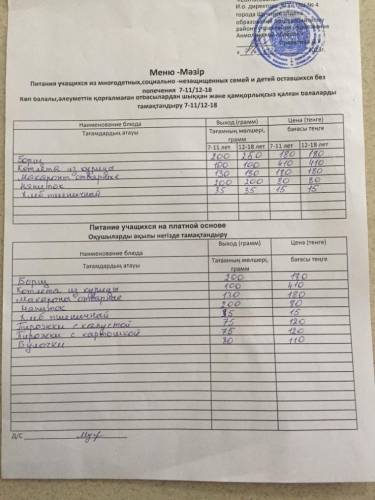 И.о. директора
№ 4
города
Меню -Мәзір
Питания учащихся из многодетных,социально -незащищенных семей и детей оставшихся без
попечения 7-11/12-18
Көп балалы,әлеуметтік қорғалмаған отбасылардан шыққан және қамқорлықсыз қалған балаларды
тамақтандыру 7-11/12-18
Наименование блюда Выход (грамм) Цена (тенге)
Тағамдардың атауы Тағамның мөлшері, грамм бағасы теңге
7-11 лет 12-18 лет 7-11 лет 12-18 лет
Борщ 200 250 180 180
Котлета из курицы 100 100 410 410
Макароны отварные 130 180 180 180
Напиток 200 200 80 80
Хлеб пшеничный 35 35 15 15
Питание учащихся на платной основе
Оқушыларды ақылы негізде тамақтандыру
Наименование блюда Выход (грамм) Цена (тенге)
Тағамдардың атауы Тағамның мөлшері, грамм бағасы теңге
Борщ 200 180
Котлета из курицы 100 410
Макароны отварные 130 180
Напиток 200 80
Хлеб пшеничный 35 15
Пирожки с капустой 75 120
Пирожки с картошкой 75 120
Булочки 80 110
Д/С